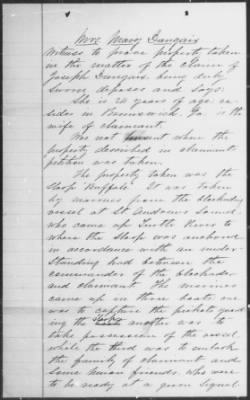 Mrs Mary Dungais
Witness to prove property taken
in the matter of the Claim of
Joseph Dungais, being duly
sworn deposes and says:
She is 20 years of age, re-
sides in Brunswick, Ga. is the
wife of claimant.
Was not present when the
property described in claimant's
petition was taken.
The property taken was the
Sloop Buffalo. It was taken
by marines from the blockading
vessel at St Andrews Sound
who came up Turtle River to
where the Sloop was anchored
in accordance with an under-
standing had between the
commander of the blockader
and claimant. The marines
came up in three boats, one
was to capture the pickets guard-
ing the Sloop another was to
take possession of the vessel
while the third was to embark
the family of claimant and
some Union friends, who were
to be ready at a given signal.